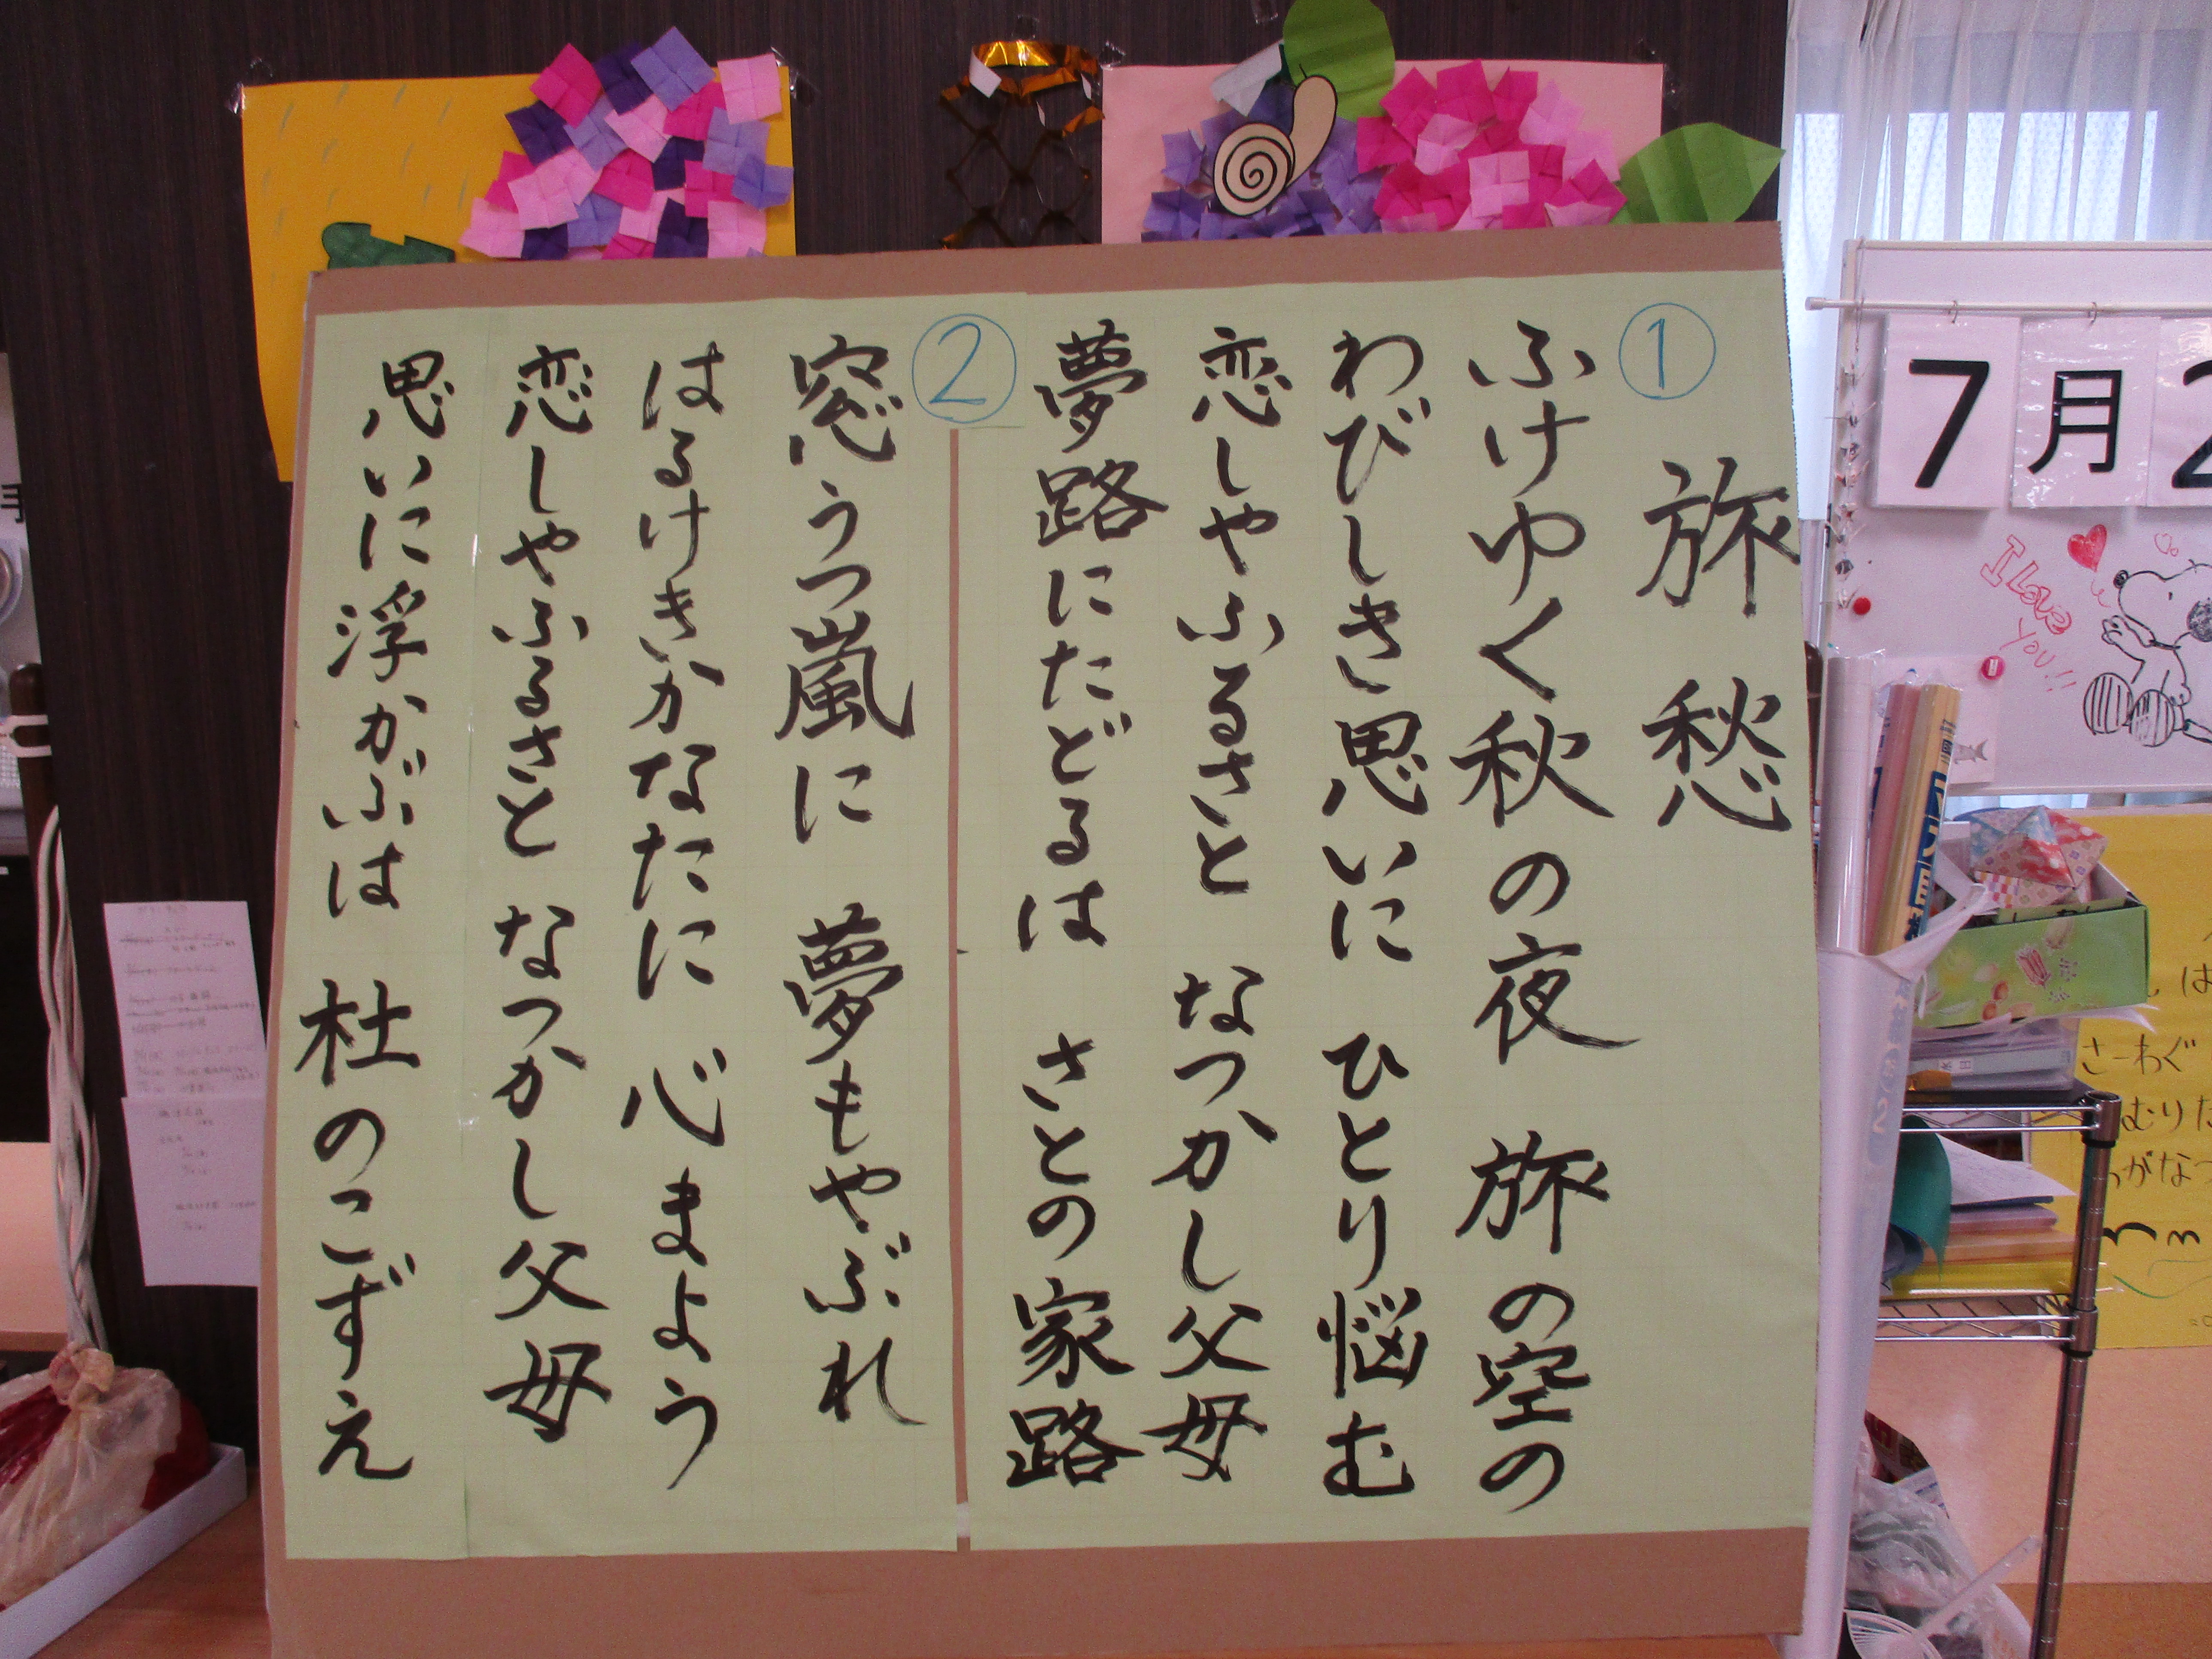 旅愁
①
ふけゆく秋の夜 旅の空の
わびしき思いに ひとり悩む
恋しやふるさと なつかし父母
夢路にたどるは さとの家路
②
窓うつ嵐に 夢もやぶれ
はるけきかなたに 心まよう
恋しやふるさと なつかし父母
思いに浮かぶは 杜のこずえ
7月2
I Love
you!!
は
さーわぐ
むりた
がなつ
手